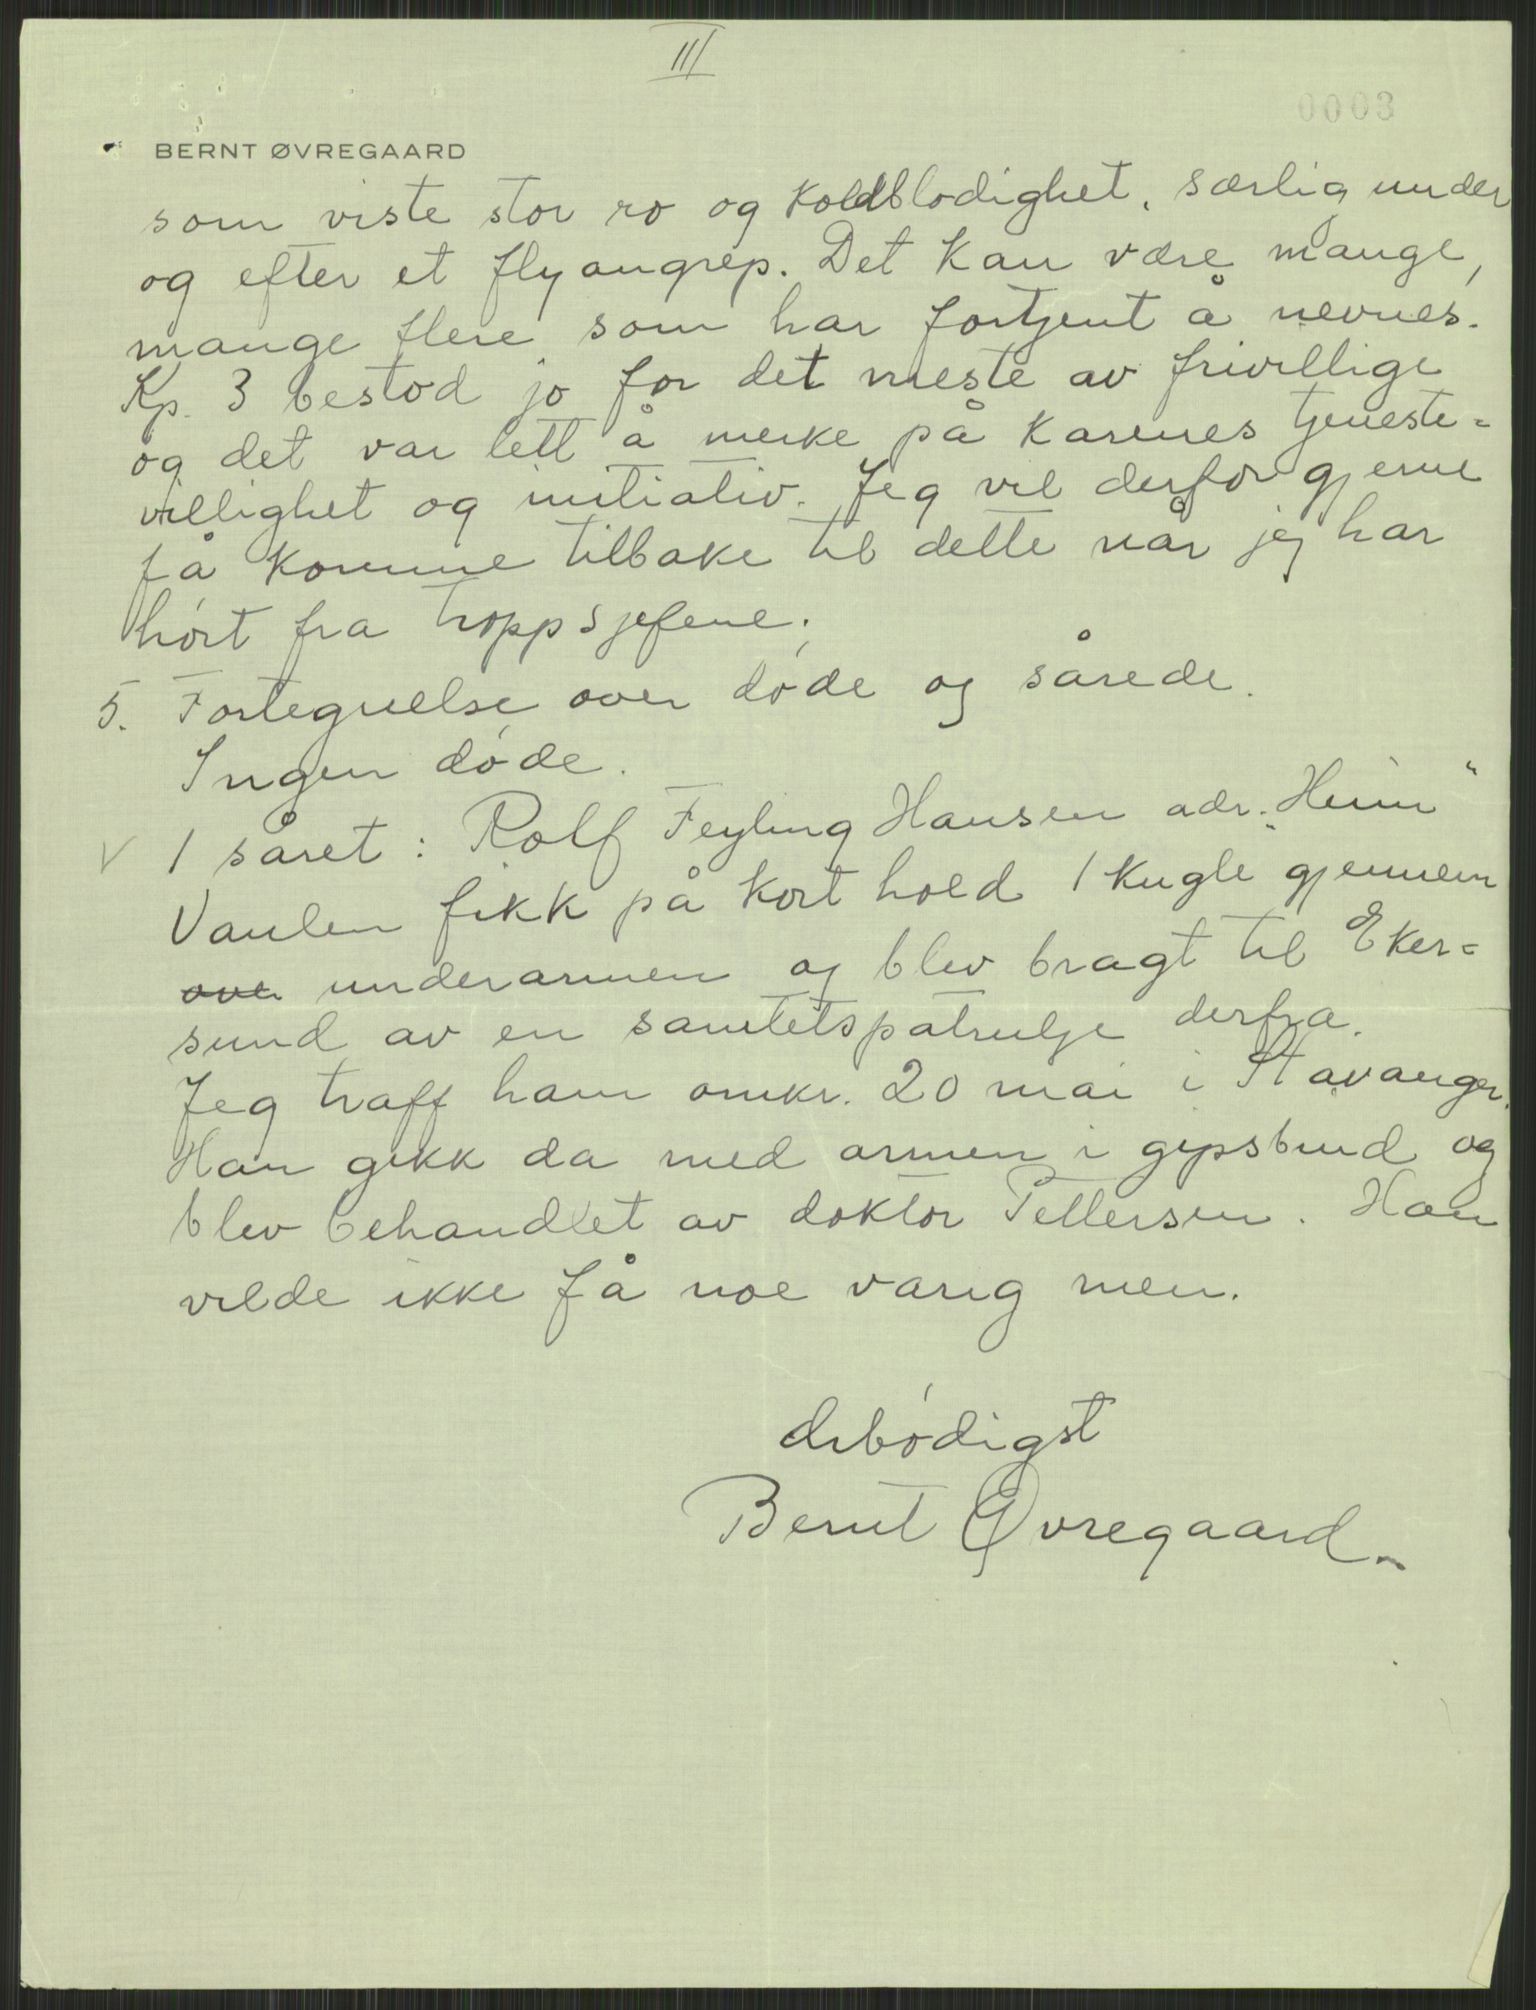 III
0003
BERNT ØVREGAARD
som viste stor ro og koldblodighet, særlig under
og efter et flyangrep. Det kan være mange,
mange flere som har fortjent å nevnes.
Kp. 3 bestod jo for det meste av frivillige
og det var lett å merke på karenes tjeneste=
villighet og initiativ. Jeg vil derfor gjerne
få komme tilbake til dette når jeg har
hørt fra troppsjefene.
5. Fortegnelse over døde og sårede.
Ingen døde.
V 1 såret : Rolf Feyling Hansen adr. "Heim"
Vaulen fikk på kort hold 1 kugle gjennem
over underarmen og blev bragt til Eker=
sund av en sanitetspatrulje derfra.
Jeg traff ham omkr. 20 mai i Stavanger.
Han gikk da med armen i gipsbind og
blev behandlet av doktor Pettersen. Han
vilde ikke få noe varig men.
Ærbødigst
Bernt Øvregaard.